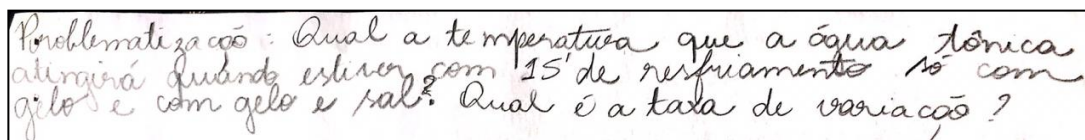 Problematização: Qual a temperatura que a água tônica
atingirá quando estiver com 15' de resfriamento só com
gelo e com gelo e sal? Qual é a taxa de variação?